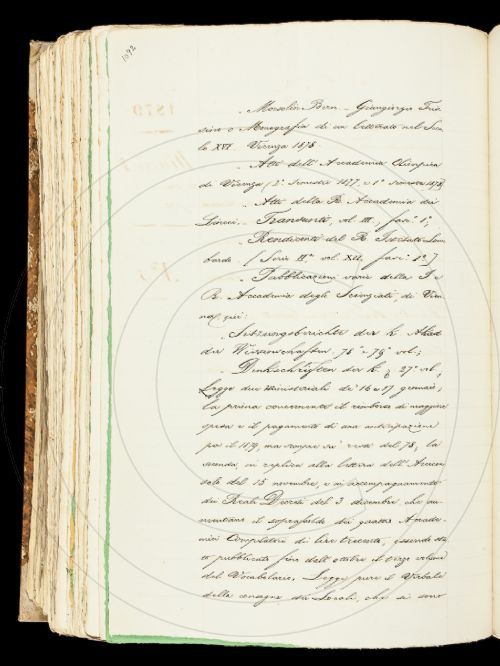 1092
- Morsolin Bern. - Giangiorgio Tris-
sino o Monografia di un letterato nel Seco-
lo XVI. Vicenza 1878.
- Atti dell'Accademia Olimpica
di Vicenza (2.° semestre 1877, e 1.° semestre 1878)
- Atti della R. Accademia dei
Lincei. - Transunti, vol. III., fasc. 1.°,
- Rendiconti del R. Istituto Lom-
bardo (Serie II.a vol. XII, fasc. 1.°)
- Pubblicazioni varie della I. e
R. Accademia degli Scienziati di Vien-
na, qui:
- Sitzungsberichte der k. Akad.
der Wissenschaften, 76.° e 79.° vol.;
- Denkschriften der k. 27.° vol.
Legge due ministeriali de' 16 e 17 gennaio;
la prima concernente il rimborso di maggiore
spesa e il pagamento di una anticipazione
per il 1879, ma sempre su' del 78; la
seconda, in replica alla lettera dell'Arcicon-
solo del 15 novembre, e in accompagnamento
dei Reali Decreti del 3 dicembre, che au-
mentano il soprassoldo dei quattro Accade-
mici Compilatori di lire trecento, essendo sta-
to pubblicato fino dall'ottobre il terzo volume
del Vocabolario. Legge pure il Verbale
della consegna dei Locali, che si sono